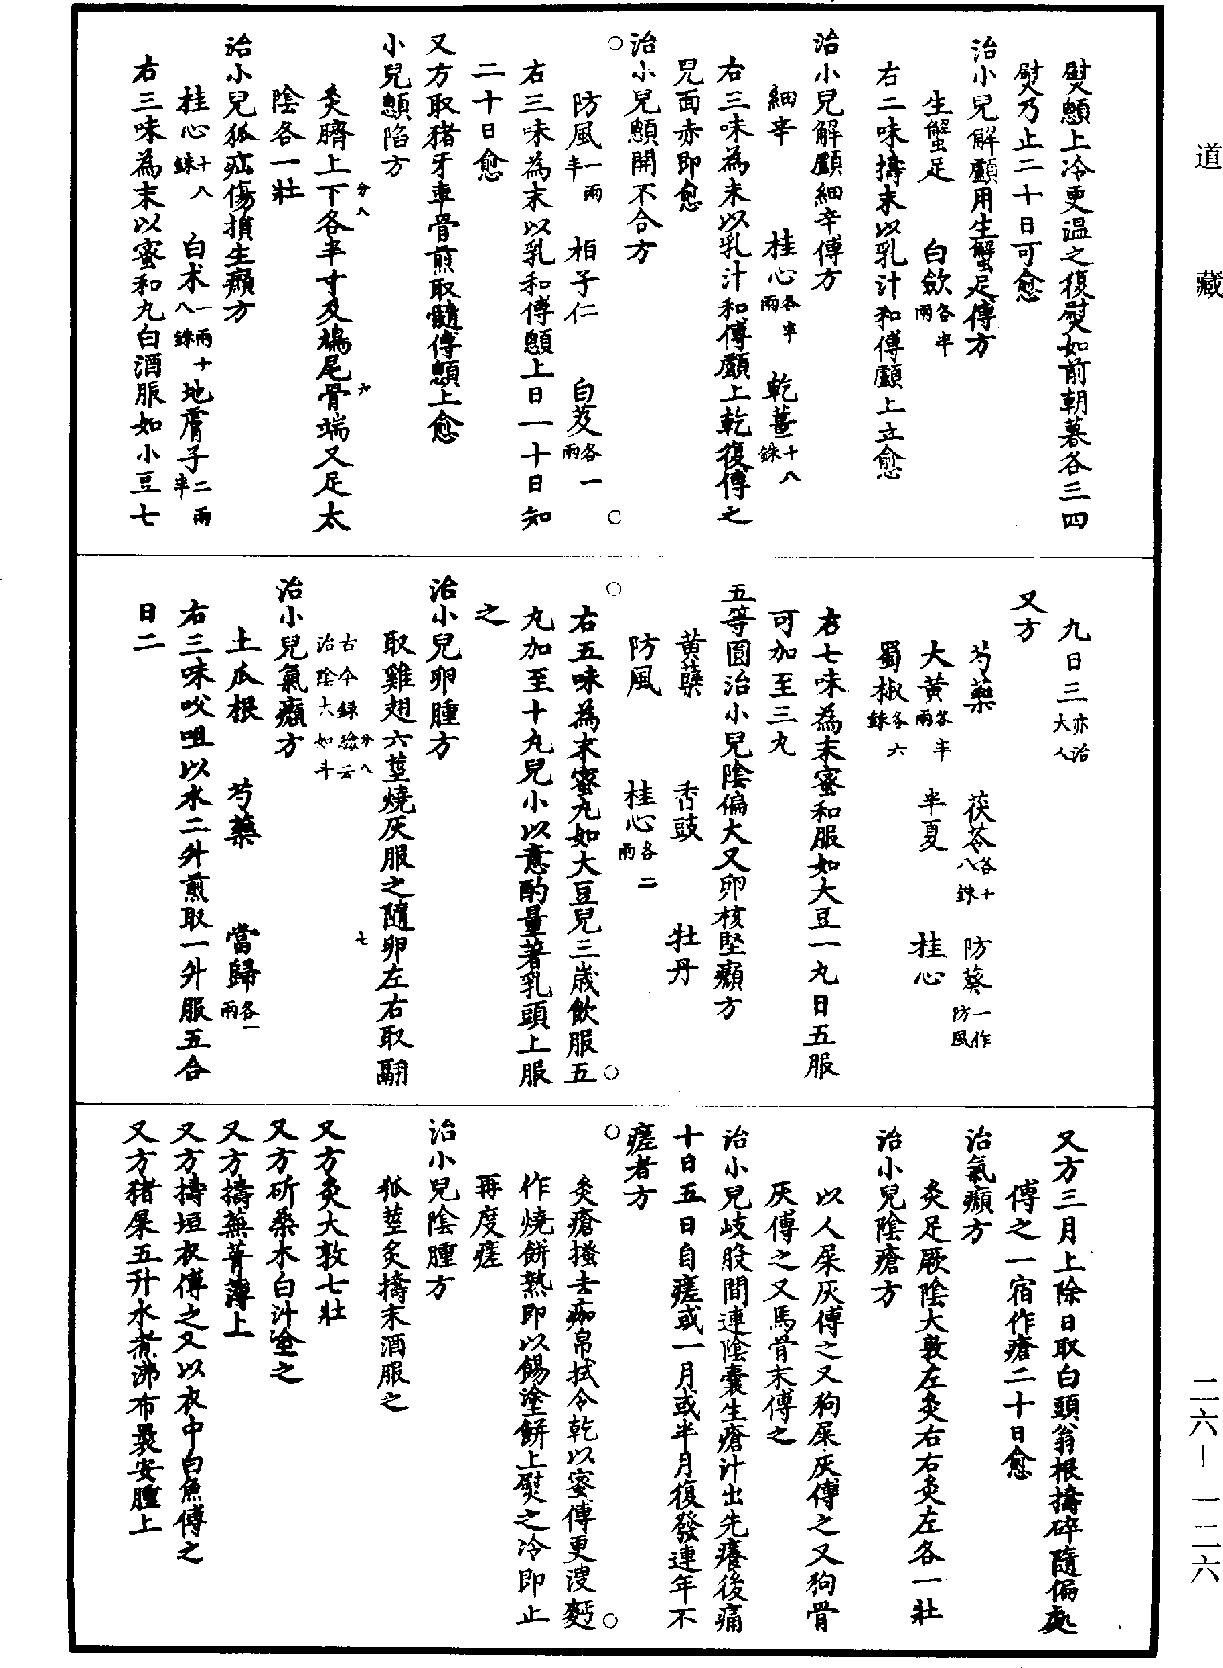 道藏
熨顖上冷更温之復熨如前朝暮各三四
熨乃止二十日可愈
治小兒解顱用生蟹足傅方
生蟹足　白歛各半兩
右二味擣末以乳汁和傅顱上立愈
治小兒解顱細辛傅方
細辛　桂心各半兩　乾薑十八銖
右三味為末以乳汁和傅顱上乾復傅之
兒面赤即愈
治小兒顖開不合方
防風一兩半　柏子仁　白芨各一兩
右三味為末以乳和傅顖上日一十日知
二十日愈
又方取猪牙車骨煎取髓傅顖上愈
小兒顖陷方
灸臍上下各半寸及鳩尾骨端又足太
陰各一壯
治小兒狐疝傷損生㿗方
桂心十八銖　白术一兩十八銖　地膚子二兩半
右三味為末以蜜和丸白酒服如小豆七
九日三亦治大人
又方
芍藥　茯苓各十八銖　防葵一作防風
大黃各半兩　半夏　桂心
蜀椒各六銖
右七味為末蜜和服如大豆一丸日五服
可加至三丸
五等圓治小兒陰偏大又卵核堅㿗方
黃蘗　香豉　牡丹
防風　桂心各二兩
右五味為末蜜丸如大豆兒三歲飲服五
丸加至十丸兒小以意酌量著乳頭上服
之
治小兒卵腫方
取雞翅六莖燒灰服之隨卵左右取翮
古今録驗云治陰大如斗
治小兒氣㿗方
土瓜根　芍藥　當歸各一兩
右三味㕮咀以水二升煎取一升服五合
日二
又方三月上除日取白頭翁根擣碎隨偏處
傅之一宿作瘡二十日愈
治氣㿗方
灸足厥陰大敦左灸右右灸左各一壯
治小兒陰瘡方
以人屎灰傅之又狗屎灰傅之又狗骨
灰傅之又馬骨末傅之
治小兒歧股間連陰囊生瘡汁出先癢後痛
十日五日自瘥或一月或半月復發連年不
瘥者方
灸瘡搔去痂帛拭令乾以蜜傅更溲麫
作燒餅熟即以餳塗餅上熨之冷即止
再度瘥
治小兒陰腫方
狐莖炙擣末酒服之
又方灸大敦七壯
又方斫桑木白汁塗之
又方擣蕪菁薄上
又方擣垣衣傅之又以衣中白魚傅之
又方猪屎五升水煮沸布裹安腫上
二六—一二六